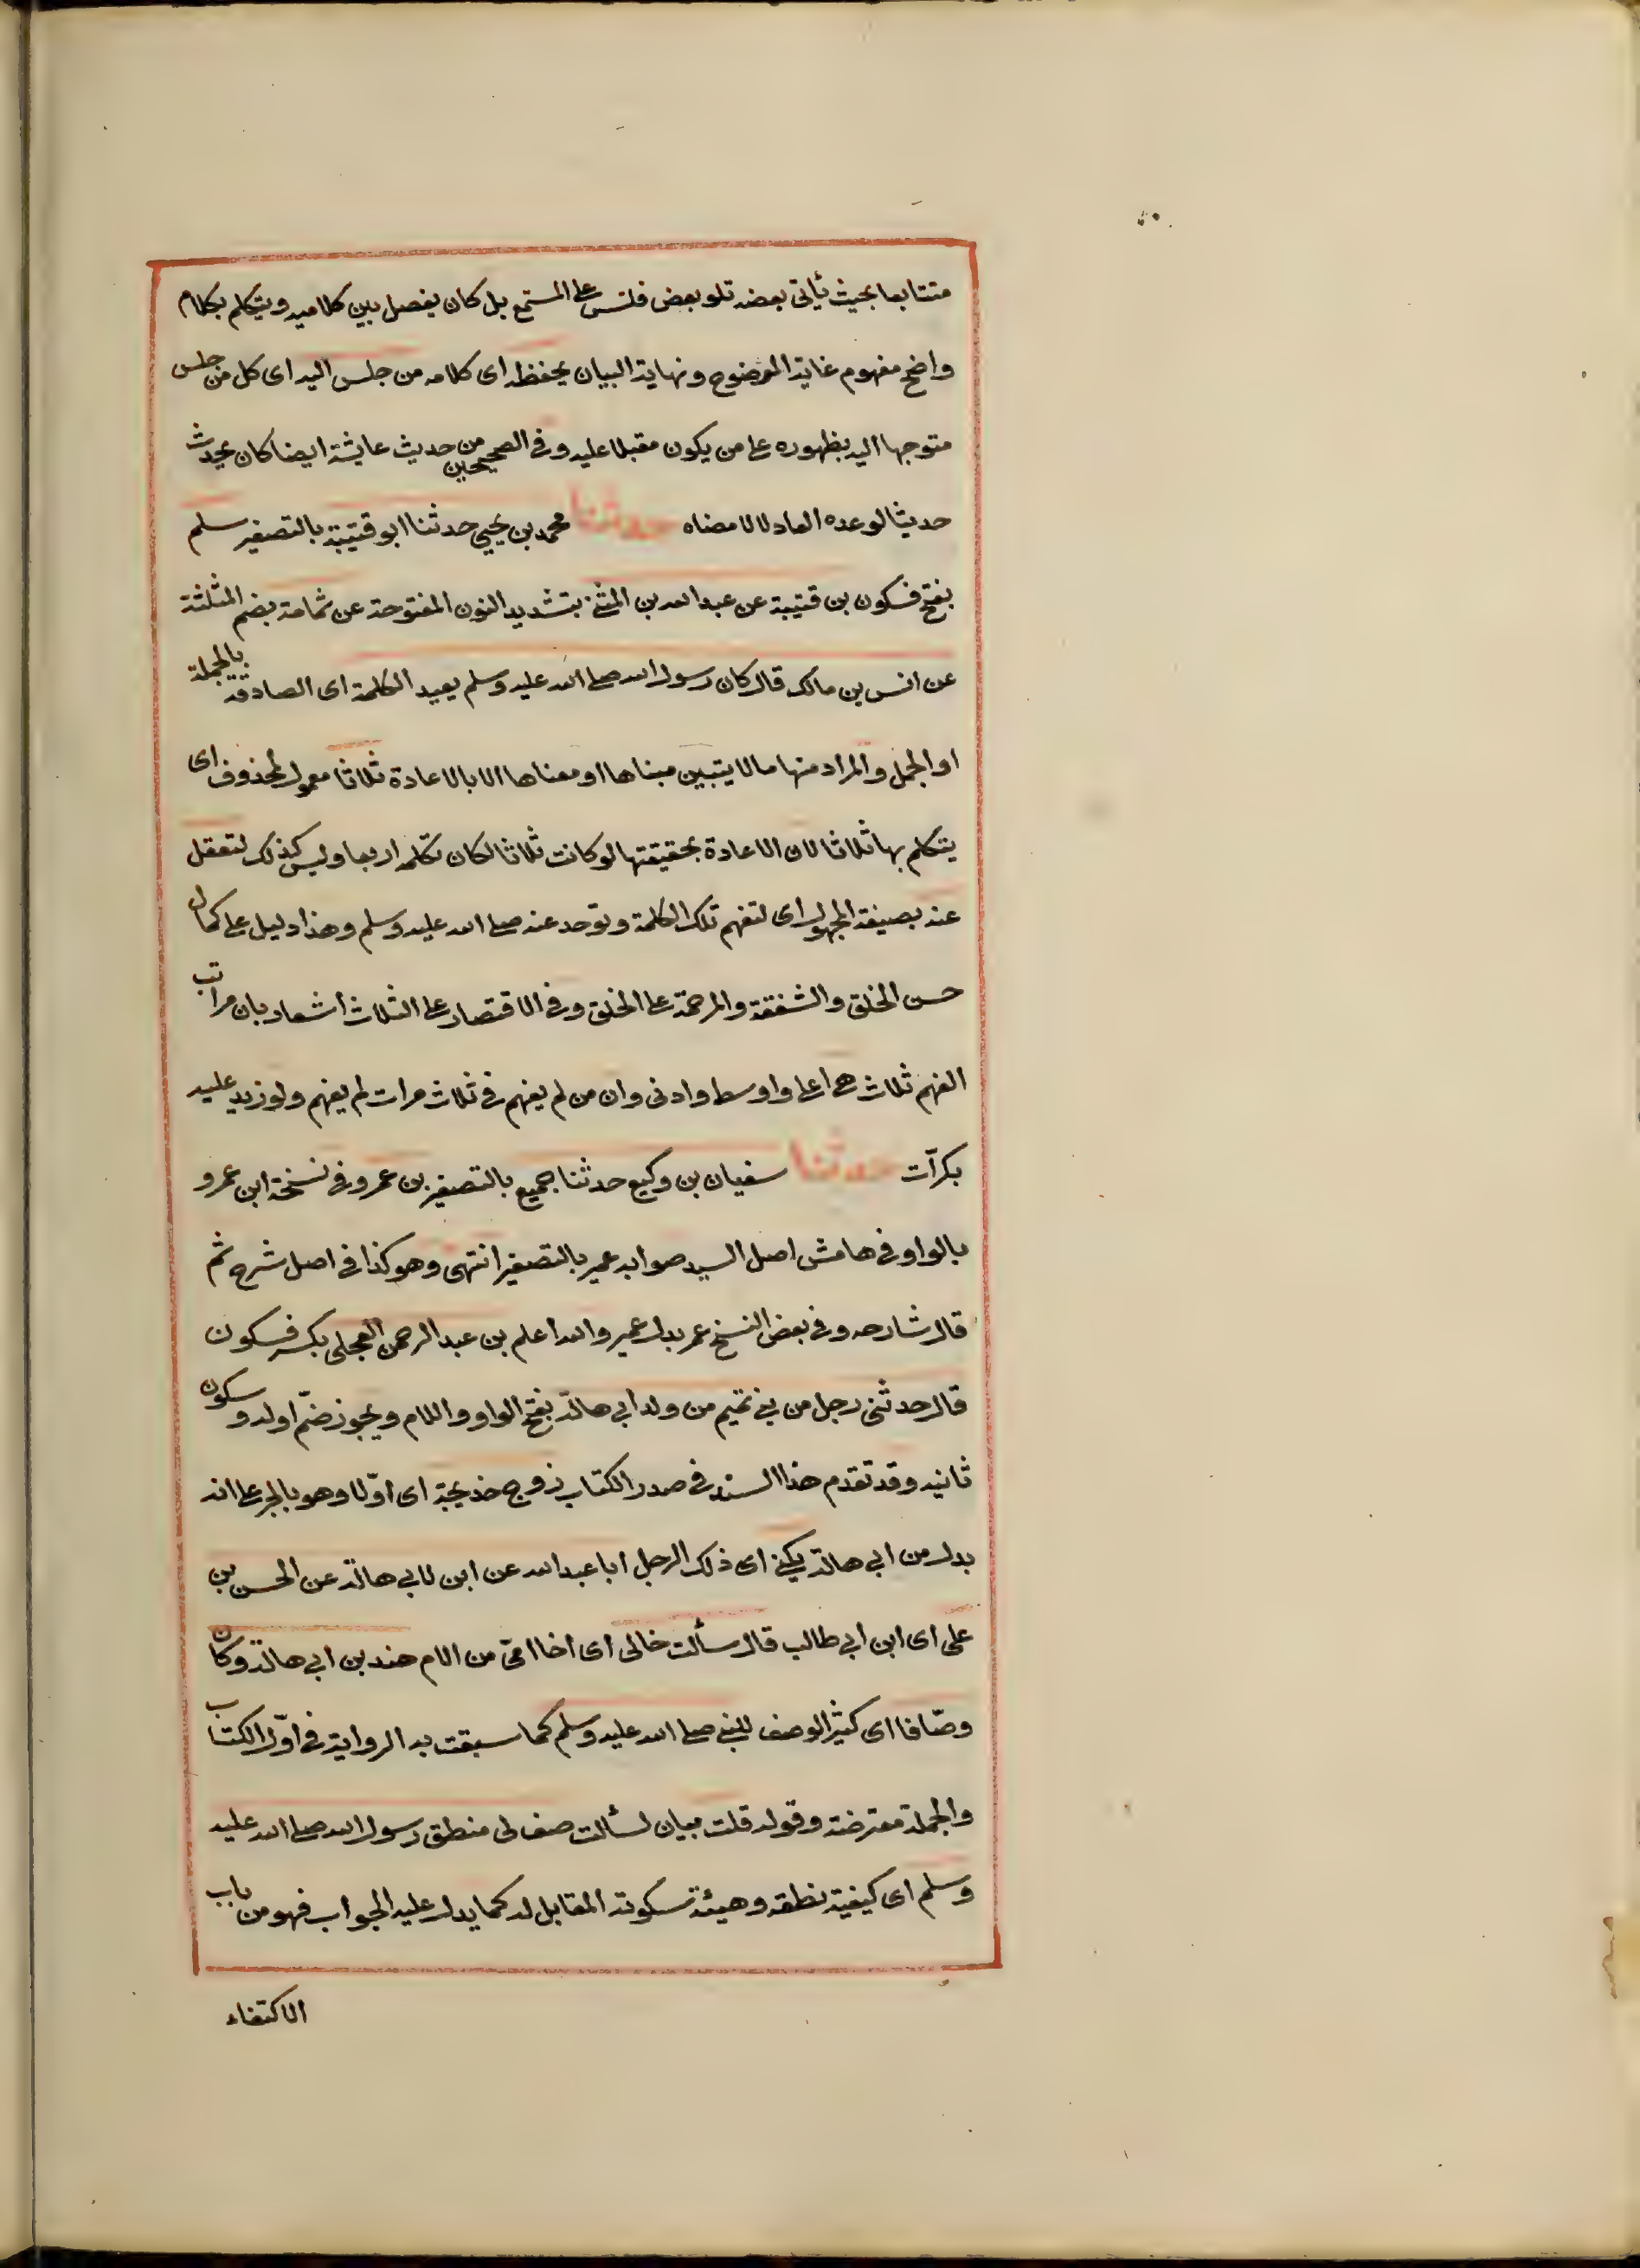 متتابعا بحيث يأتى بعضه تلو بعض فلتبس على المستمع بل كان يفصل بين كلاميه ويتكلم بكلام
واضح مفهوم غاية الوضوح ونهاية البيان يحفظه اى كلامه من جلس اليه اى كل من جلس
متوجها اليه بظهوره على من يكون مقبلا عليه وفى الصحيحين من حديث عايشة ايضا كان يحدث
حديثا لو عده العاد لا لامضاه حدثنا محمد بن يحيى حدثنا ابو قتيبة بالتصغير سلم
بفتح فسكون بن قتيبة عن عبد الله بن المثنى بتشديد النون المفتوحة عن ثمامة بضم المثلثة
عن انس بن مالك قال كان رسول الله صلى الله عليه وسلم يعيد الكلمة اى الصادقة بالجملة
او الجمل والمراد منها ما لا يتبين مبناها او معناها الا بالاعادة ثلاثا معمول لمحذوف اى
يتكلم بها ثلاثا لان الاعادة بحقيقتها لو كانت ثلاثا لكان تكلمه اربعا وليس كذلك لتعقل
عنه بصيغة المجهول اى لتفهم تلك الكلمة وتوحد عنه صلى الله عليه وسلم وهذا دليل على كمال
حسن الخلق والشفقة والمرحمة على الخلق وفى الاقتصار على الثلاث اشعار بان مراتب
الفهم ثلاث هى اعلى واوسط وادنى وان من لم يفهم فى ثلاث مرات لم يفهم ولو زيد عليه
بكرّات حدثنا سفيان بن وكيع حدثنا جميع بالتصغير بن عمر وفى نسخة ابن عمرو
بالواو وفى هامش اصل السيد صوابه عمير بالتصغير انتهى وهو كذا فى اصل شرح ثم
قال شارحه وفى بعض النسخ عمر بدل عمير والله اعلم بن عبد الرحمن العجلى بكسر فسكون
قال حدثنى رجل من بنى تميم من ولد ابى هالة بفتح الواو واللام ويجوز ضمّ اوله وسكون
ثانيه وقد تقدم هذا السند فى صدر الكتاب زوج خديجة اى اوّلا وهو بالجر على انه
بدل من ابى هالة يكنى اى ذلك الرجل ابا عبد الله عن ابن لابى هالة عن الحسن بن
على اى ابن ابى طالب قال سألت خالى اى اخا امّى من الام هند بن ابى هالة وكان
وصّافا اى كثير الوصف للنبى صلى الله عليه وسلم كما سبقت به الرواية فى اوّل الكتاب
والجملة معترضة وقوله قلت بيان لسألت صف لى منطق رسول الله صلى الله عليه
وسلم اى كيفية نطقه وهيئة سكوته المقابل له كما يدل عليه الجواب فهو من باب
الاكتفاء